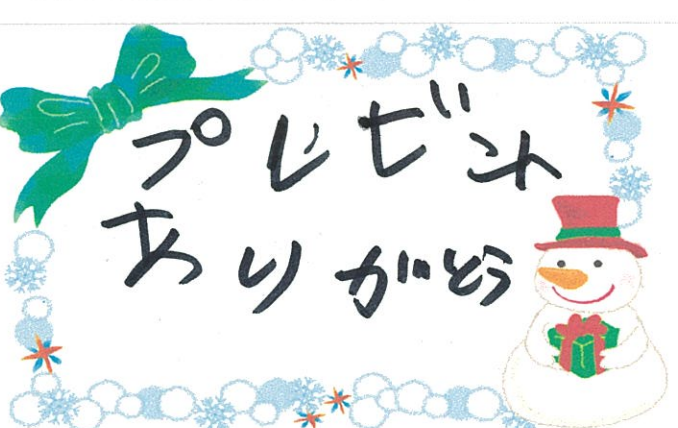 プレゼント
ありがとう